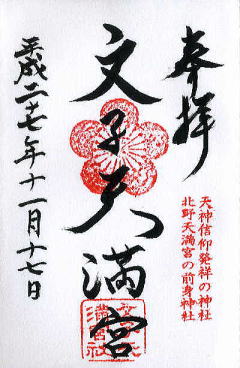 奉拝
天神信仰発祥の神社
北野天満宮の前身神社
文子天満宮
平成二十七年十一月十七日